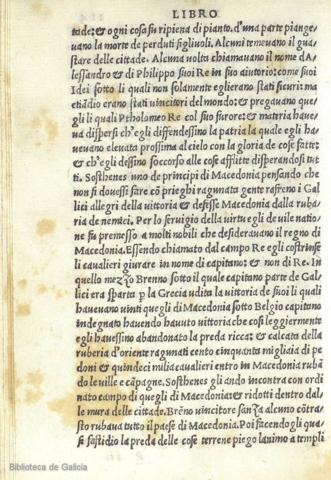 LIBRO
tade: & ogni cosa fu ripiena di pianto. d'una parte piange
uano la morte de perduti figliuoli. Alcuni temeuano il gua
stare delle cittade. Alcuna uolta chiamauano il nome d'A
lessandro & di Philippo suoi Re in suo aiutorio: come suoi
Idei sotto li quali non solamente eglierano stati sicuri: ma
etiãdio erano stati uincitori del mondo: & pregauano que
gli li quali Ptholomeo Re col suo furore: & materia haue
ua dispersi ch'egli diffendessino la patria la quale egli ha
ueuano eleuata prossima al cielo con la gloria de cose fatte:
& ch'egli dessino soccorso alle cose afflitte disperandosi tut
ti. Sosthenes uno de principi di Macedonia pensando che
non si douessi fare cõ prieghi ragunata gente rafreno i Gal
lici allegri della uittoria & defesse Macedonia dalla ruba
ria de nemici. Per lo seruigio della uirtu egli di uile natio
ne fu premesso a molti nobili che desiderauano il regno di
Macedonia. Essendo chiamato dal campo Re egli costrinse
li caualieri giurare in nome di capitano: & non di Re. In
quello mezzo Brenno sotto il quale capitano parte de Gal
lici era sparta p la Grecia udita la uittoria de suoi li quali
haueuano uinti quegli di Macedonia sotto Belgio capitano
indegnato hauendo hauuto uittoria che cosi leggiermente
egli hauessino abandonato la preda ricca: & calcata della
ruberia d'oriente ragunati cento cinquanta migliaia di pe
doni & quindeci milia caualieri entro in Macedonia rubã
do le uille e cãpagne. Sosthenes gli ando incontra con ordi
nato campo di quegli di Macedonia: & ridotti dentro dal
le mura delle cittade. Brẽno uincitore sanza alcuno cõtra
sto rubaua tutto il paese di Macedonia. Poi facendogli qua
si fastidio la preda delle cose terrene piego lanimo a templi
Biblioteca de Galicia